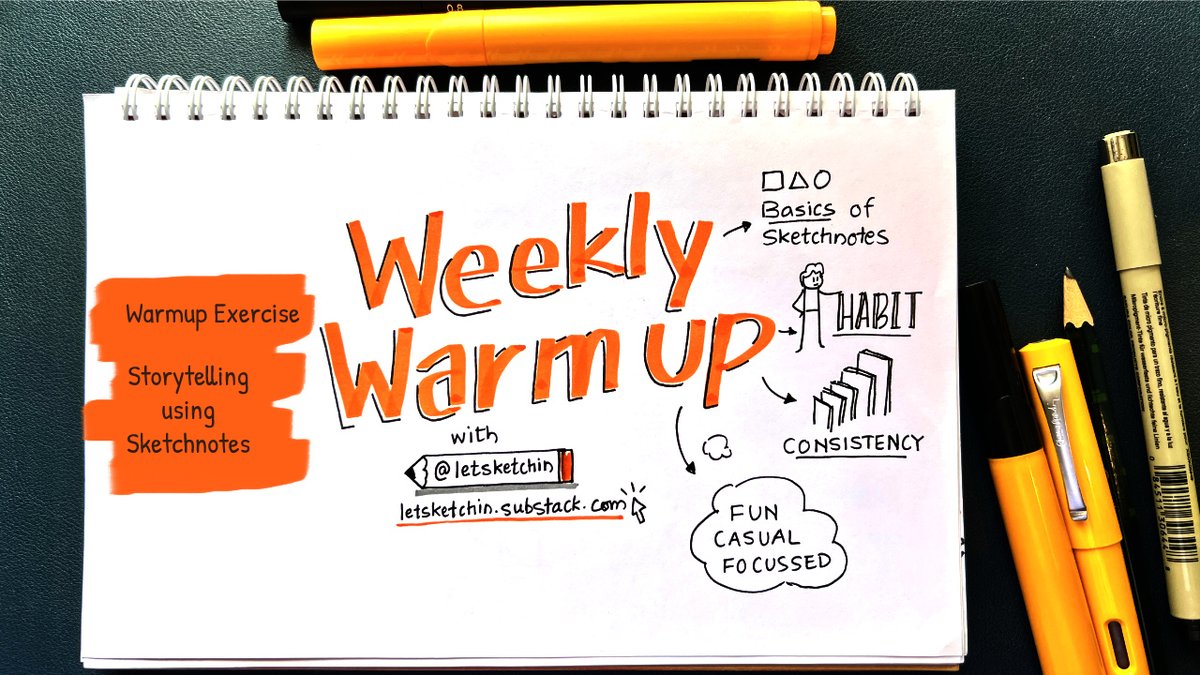 0.8
Warmup Exercise
Storytelling
using
Sketchnotes
Weekly
Warm up
with
@letsketchin
letsketchin.substack.com
Basics of
Sketchnotes
HABIT
CONSISTENCY
FUN
CASUAL
FOCUSSED